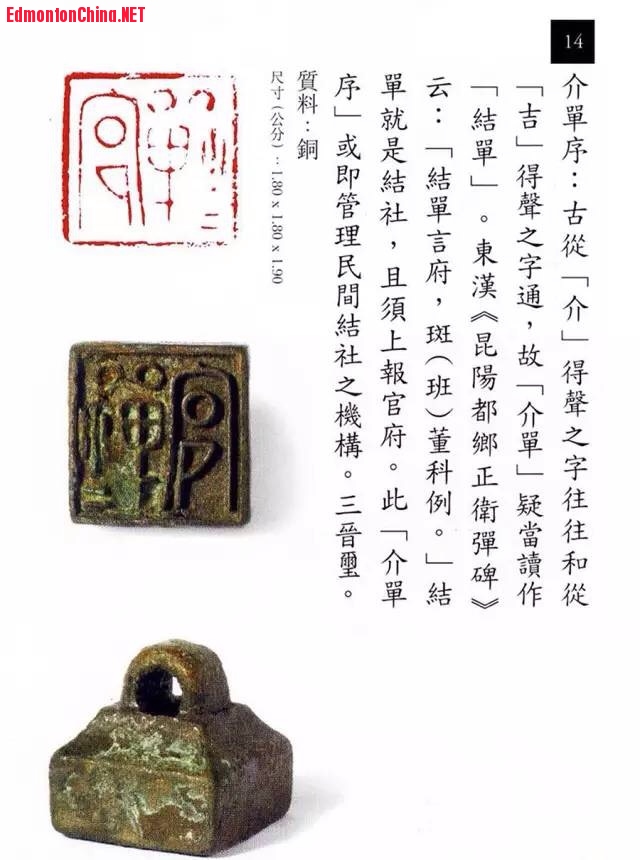 EdmontonChina.NET
14
介單序：古從「介」得聲之字往往和從
「吉」得聲之字通，故「介單」疑當讀作
「結單」。東漢《昆陽都鄉正衛彈碑》
云：「結單言府，斑（班）董科例。」結
單就是結社，且須上報官府。此「介單
序」或即管理民間結社之機構。三晉璽。
質料：銅
尺寸（公分）：1.80 x 1.80 x 1.90